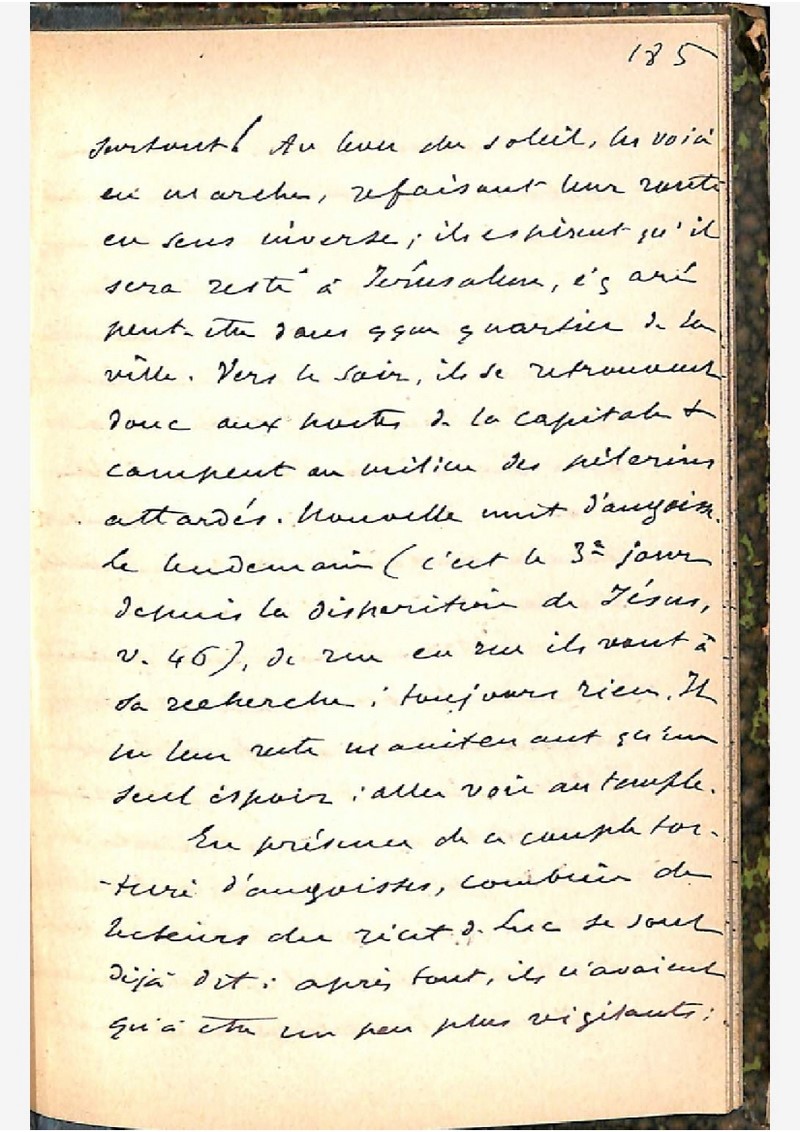 185
surtout ! Au lever du soleil, les voici
en marche, refaisant leur route
en sens inverse ; ils espèrent qu'il
sera resté à Jérusalem, égaré
peut-être dans qque quartier de la
ville. Vers le soir, ils se retrouvent
donc aux portes de la capitale &
campent au milieu des pèlerins
attardés. Nouvelle nuit d'angoisse.
Le lendemain (c'est le 3e jour
depuis la disparition de Jésus,
v. 46), de rue en rue ils vont à
sa recherche ; toujours rien. Il
ne leur reste maintenant qu'un
seul espoir : aller voir au temple.
En présence de ce couple tor-
-turé d'angoisses, combien de
lecteurs du récit de Luc se sont
déjà dit : après tout, ils n'avaient
qu'à être un peu plus vigilants :